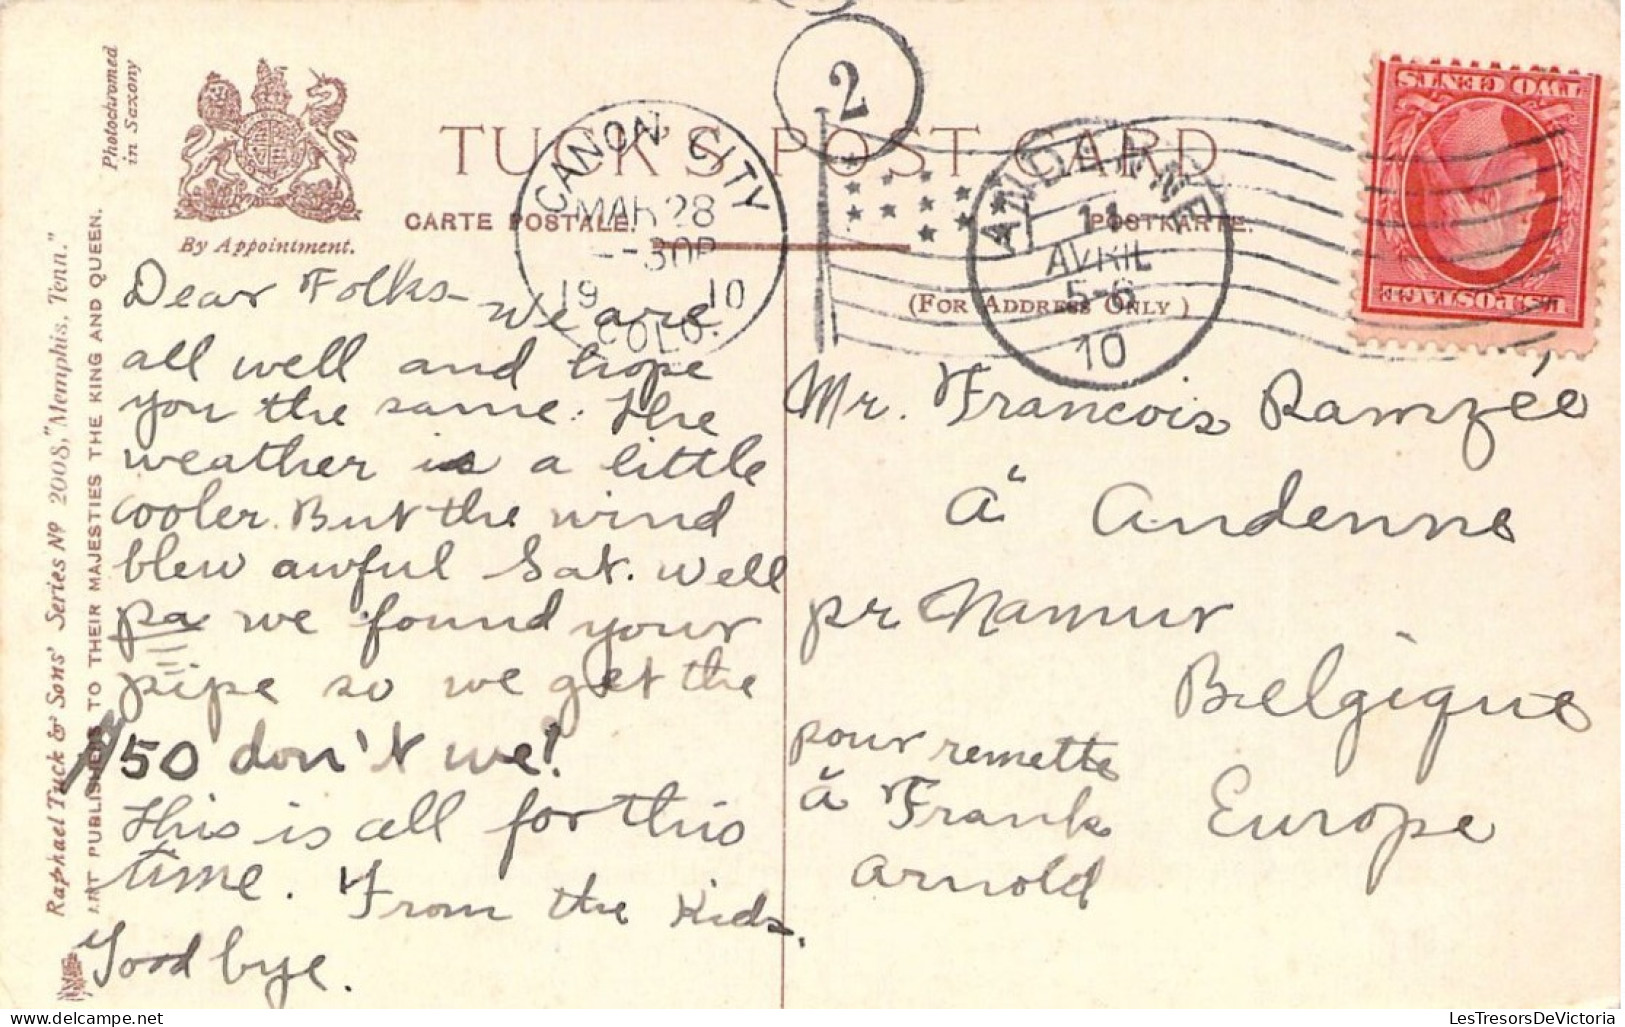 Photochromed
in Saxony
By Appointment.
TUCK'S POST CARD
CARTE POSTALE.
POSTKARTE.
(FOR ADDRESS ONLY)
CANON CITY
MAR 28
-30P
19 10
COLO.
2
ANDENNE
11
AVRIL
5-6
10
TWO CENTS
U.S. POSTAGE
Raphael Tuck & Sons' Series Nº 2008, "Memphis, Tenn."
ART PUBLISHERS TO THEIR MAJESTIES THE KING AND QUEEN.
Dear Folks- we are
all well and hope
you the same. The
weather is a little
cooler. But the wind
blew awful Sat. Well
pa we found your
pipe so we get the
50 don't we!
This is all for this
time. From the Kids.
Good bye.
Mr. Francois Ramzée
à Andenne
pr Namur
Belgique
Europe
pour remette
à Frank
Arnold
LesTresorsDeVictoria
delcampe.net